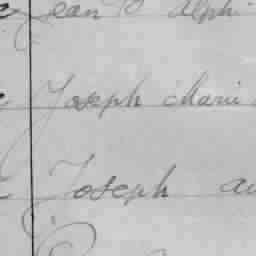 Jean B Alph
Joseph Marie
Joseph au